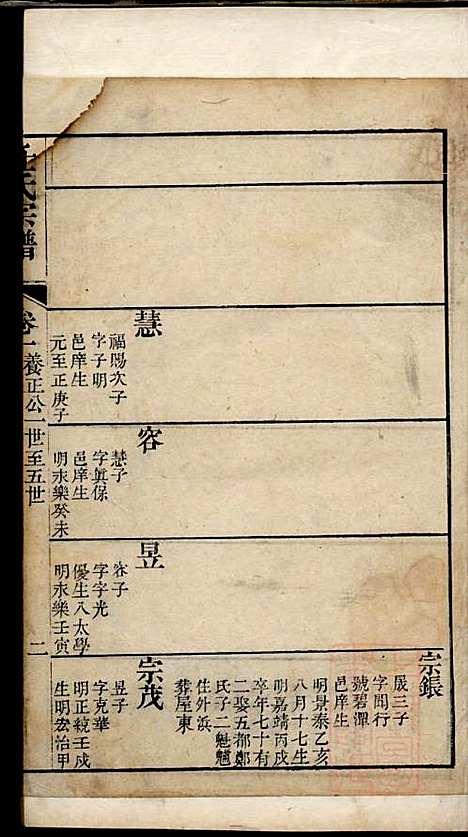 宗鋹
晟三子
字聞行
號碧潭
邑庠生
明景泰乙亥
八月十七生
明嘉靖丙戌
卒年七十有
二娶五都鄭
氏子二魁魑
住外浜
葬屋東
慧
福賜次子
字子明
邑庠生
元至正庚子
容
慧子
字眞保
邑庠生
明永樂癸未
昱
容子
字字光
優生入太學
明永樂壬寅
宗茂
昱子
字克華
明正統壬戌
生明宏治甲
氏宗譜
卷一養正公一世至五世
二